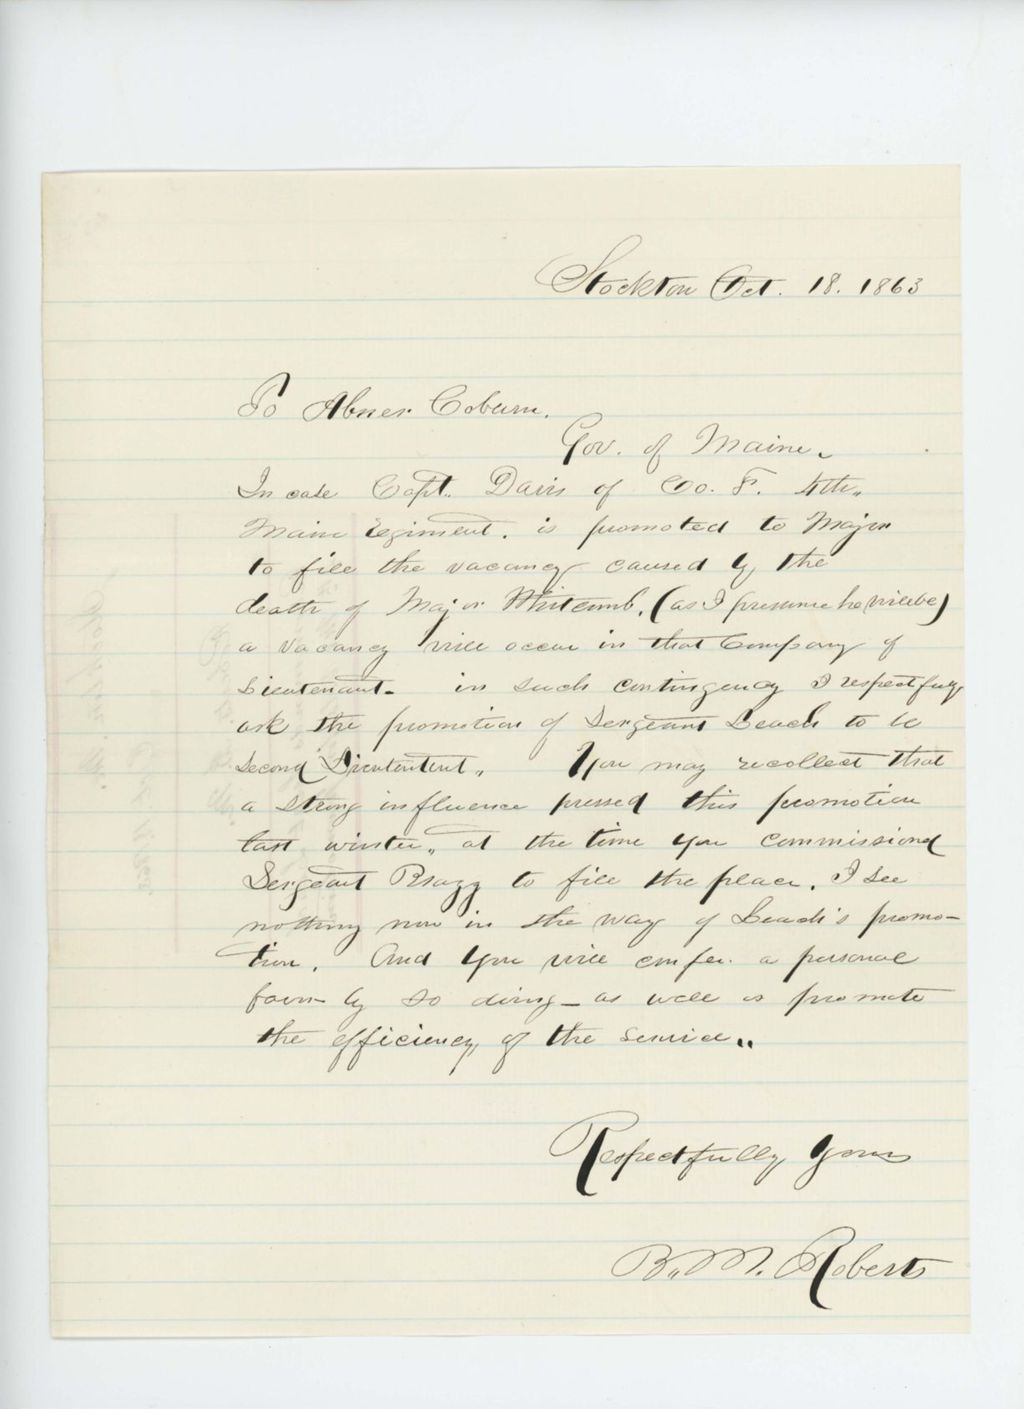 Stockton Oct. 18. 1863
To Abner Coburn.
Gov. of Maine.
In case Capt. Davis of Co. F. 4th.
Maine Regiment. is promoted to Major
to fill the vacancy caused by the
death of Major Whitcomb, (as I presume he will be)
a vacancy will occur in that Company of
Lieutenant - in such contingency I respectfully
ask the promotion of Sergeant Leach to be
Second Lieutentent. You may recollect that
a strong influence pressed this promotion
last winter, at the time you commissioned
Sergeant Bragg to fill the place. I see
nothing now in the way of Leach's promo-
tion. And you will confer a personal
favor by so doing - as well as promote
the efficiency of the service.
Respectfully yours
B. M. Roberts